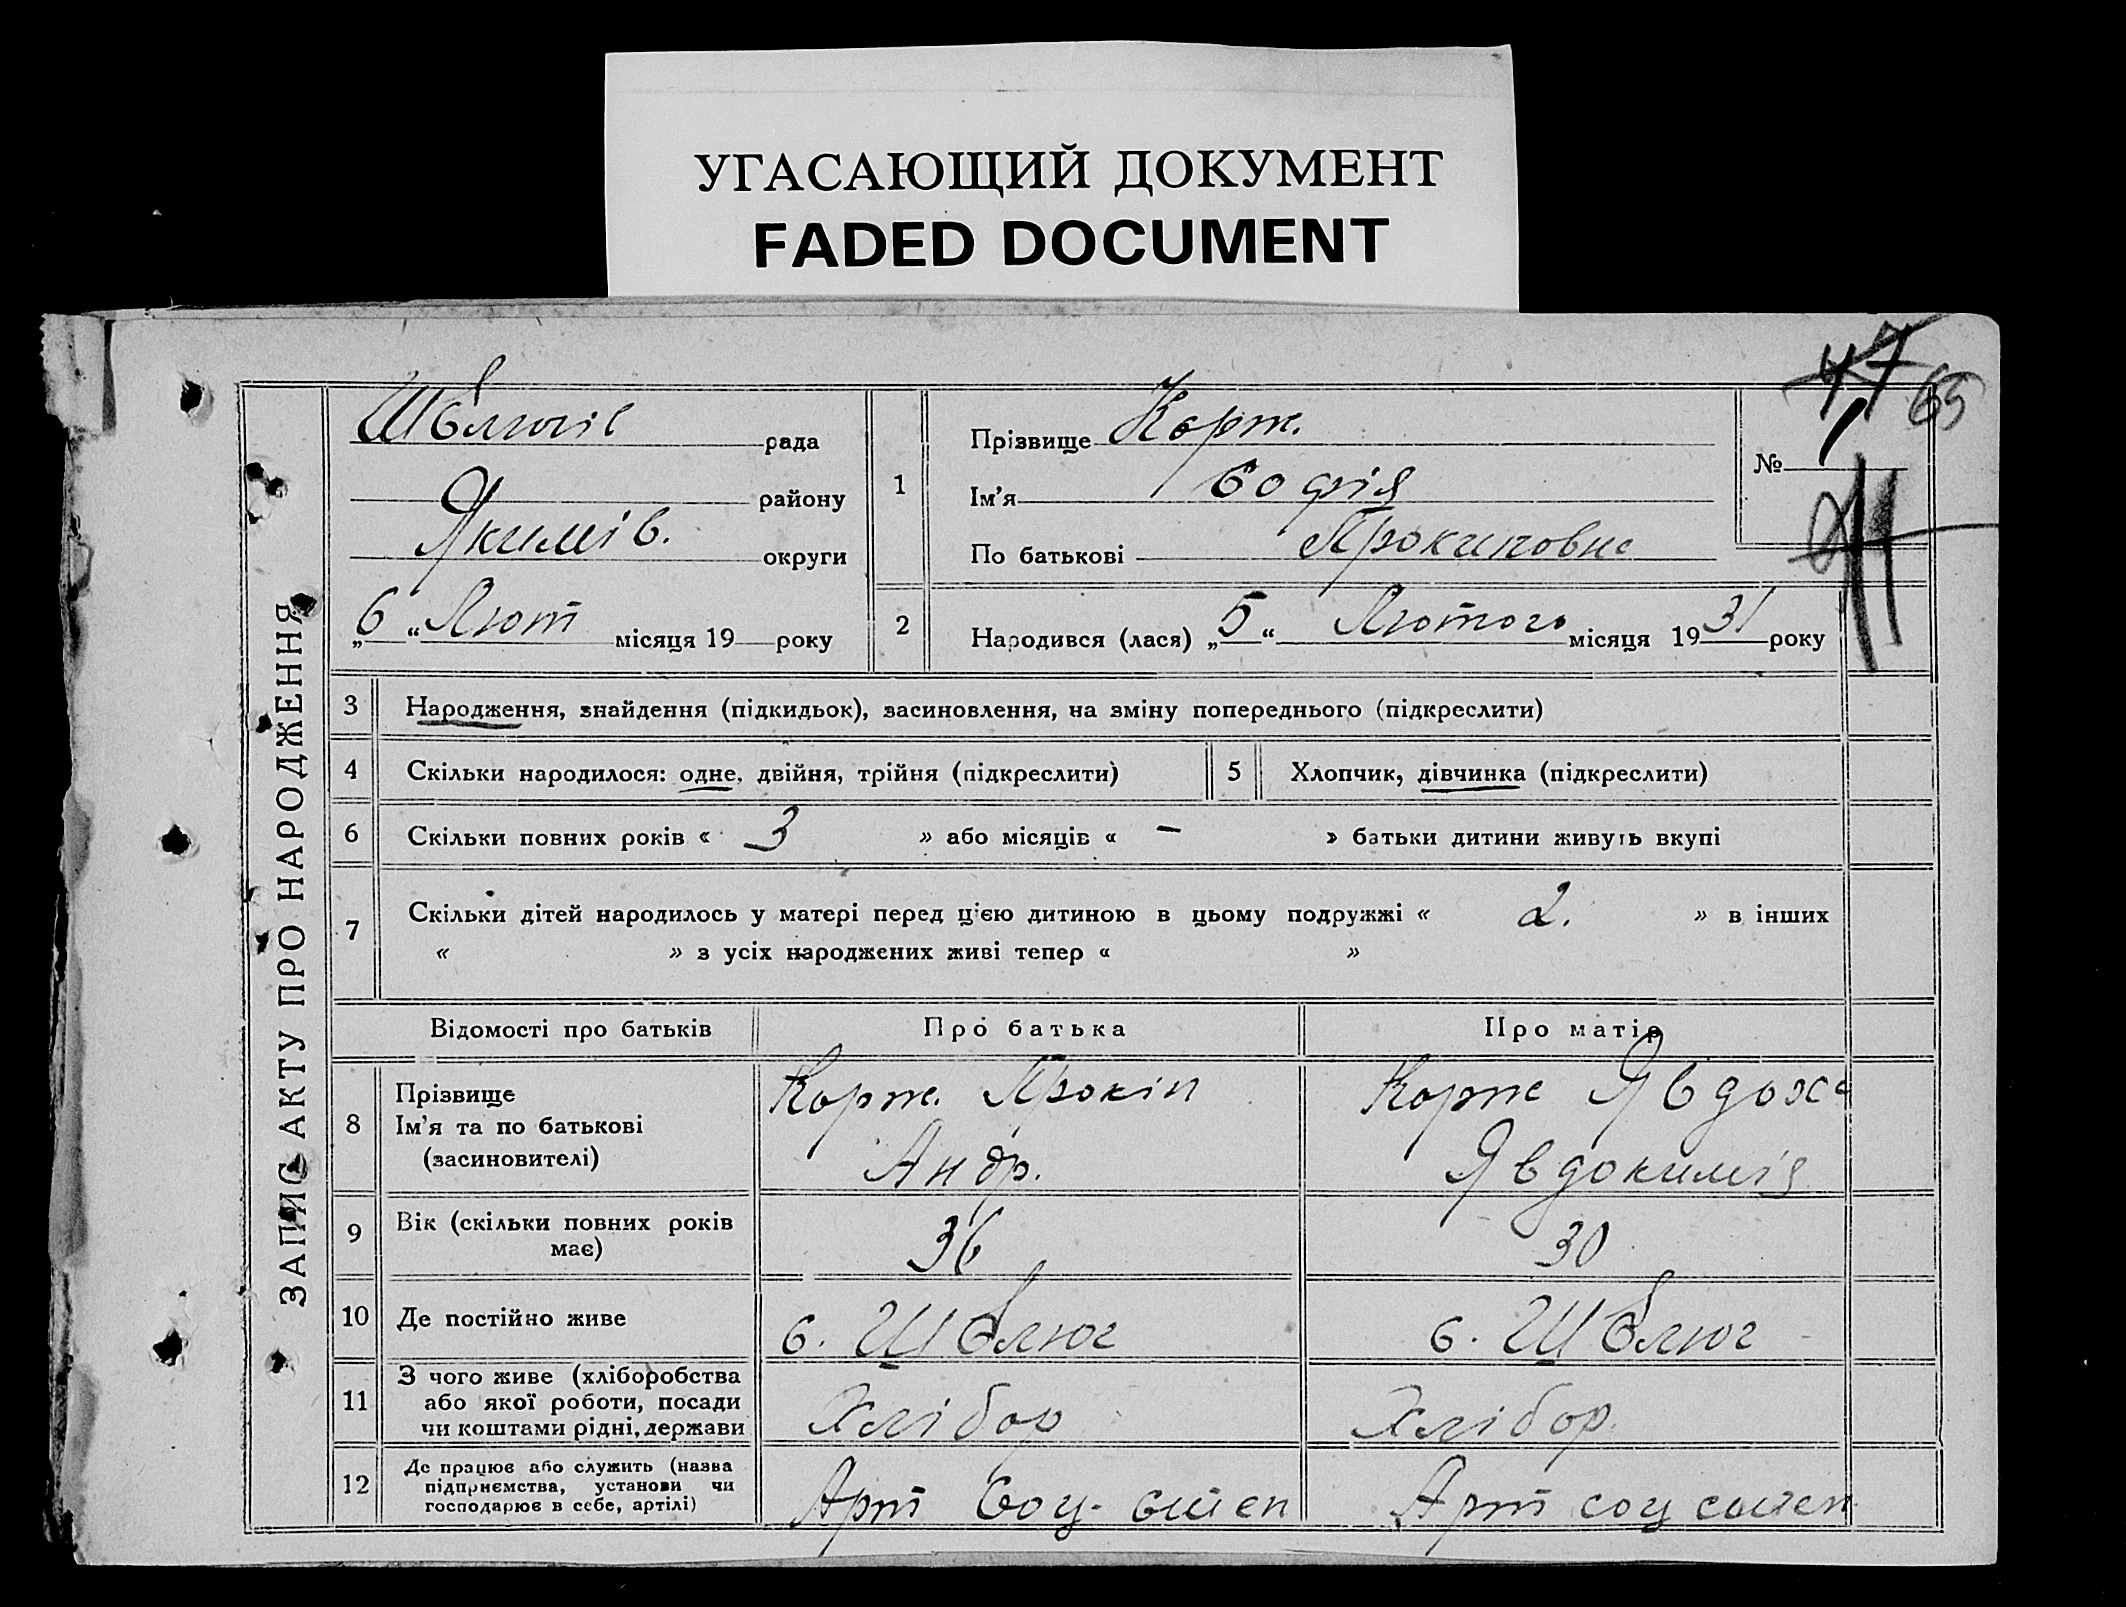 УГАСАЮЩИЙ ДОКУМЕНТ
FADED DOCUMENT
47 65
ЗАПИС АКТУ ПРО НАРОДЖЕННЯ
рада
району
Якимів. округи
„6“ Лют місяця 19 року
1
Прізвище Корж.
Ім'я Софія
По батькові Прокиповна
№
2
Народився (лася) „5“ Лютого місяця 1931 року
3 Народження, знайдення (підкидьок), засиновлення, на зміну попереднього (підкреслити)
4 Скільки народилося: одне, двійня, трійня (підкреслити) 5 Хлопчик, дівчинка (підкреслити)
6 Скільки повних років « 3 » або місяців « – » батьки дитини живуть вкупі
7 Скільки дітей народилось у матері перед цією дитиною в цьому подружжі « 2. » в інших
« » з усіх народжених живі тепер « »
Відомості про батьків Про батька Про матір
8 Прізвище
Ім'я та по батькові
(засиновителі)
Корж. Прокіп
Андр.
Корж Явдоха
Явдокимів
9 Вік (скільки повних років
має)
36 30
10 Де постійно живе
11 З чого живе (хліборобства
або якої роботи, посади
чи коштами рідні, держави
Хлібор Хлібор.
12 Де працює або служить (назва
підприємства, установи чи
господарює в себе, артілі)
Арт Соц. степ Арт соц степ